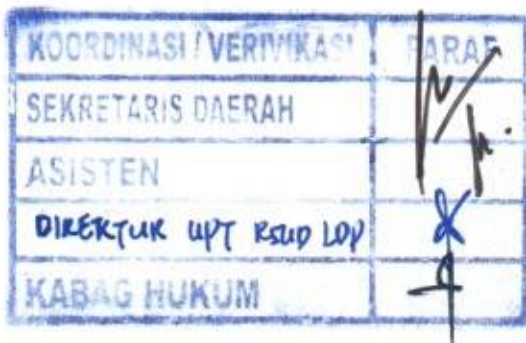 KOORDINASI / VERIVIKASI PARAF
SEKRETARIS DAERAH
ASISTEN
DIREKTUR UPT RSUD LDP
KABAG HUKUM